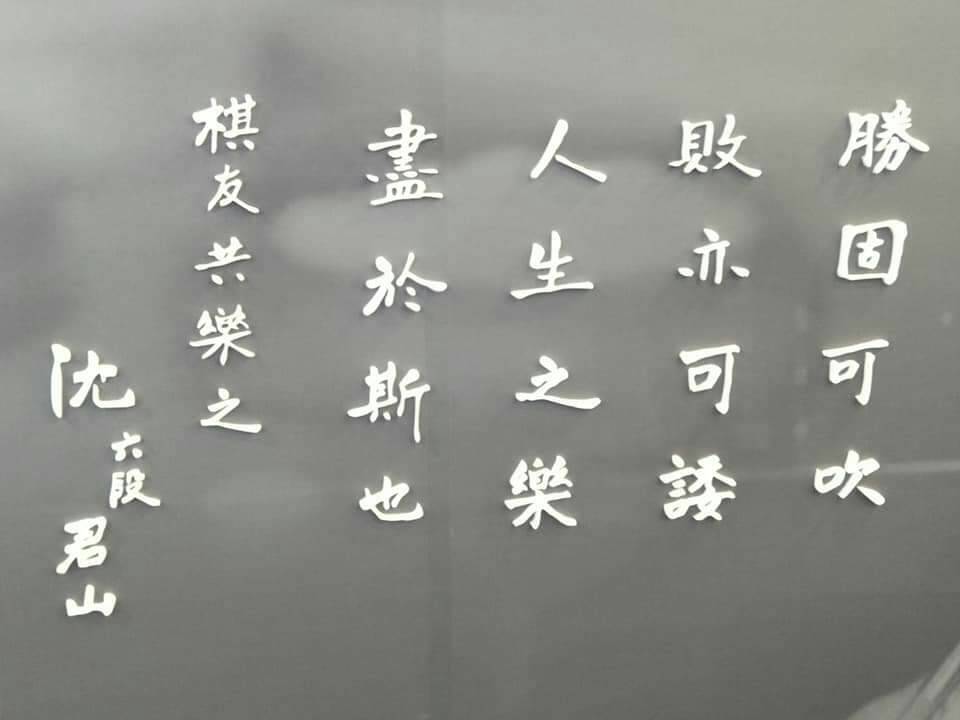 勝固可吹
敗亦可諉
人生之樂
盡於斯也
棋友共樂之
沈六段君山